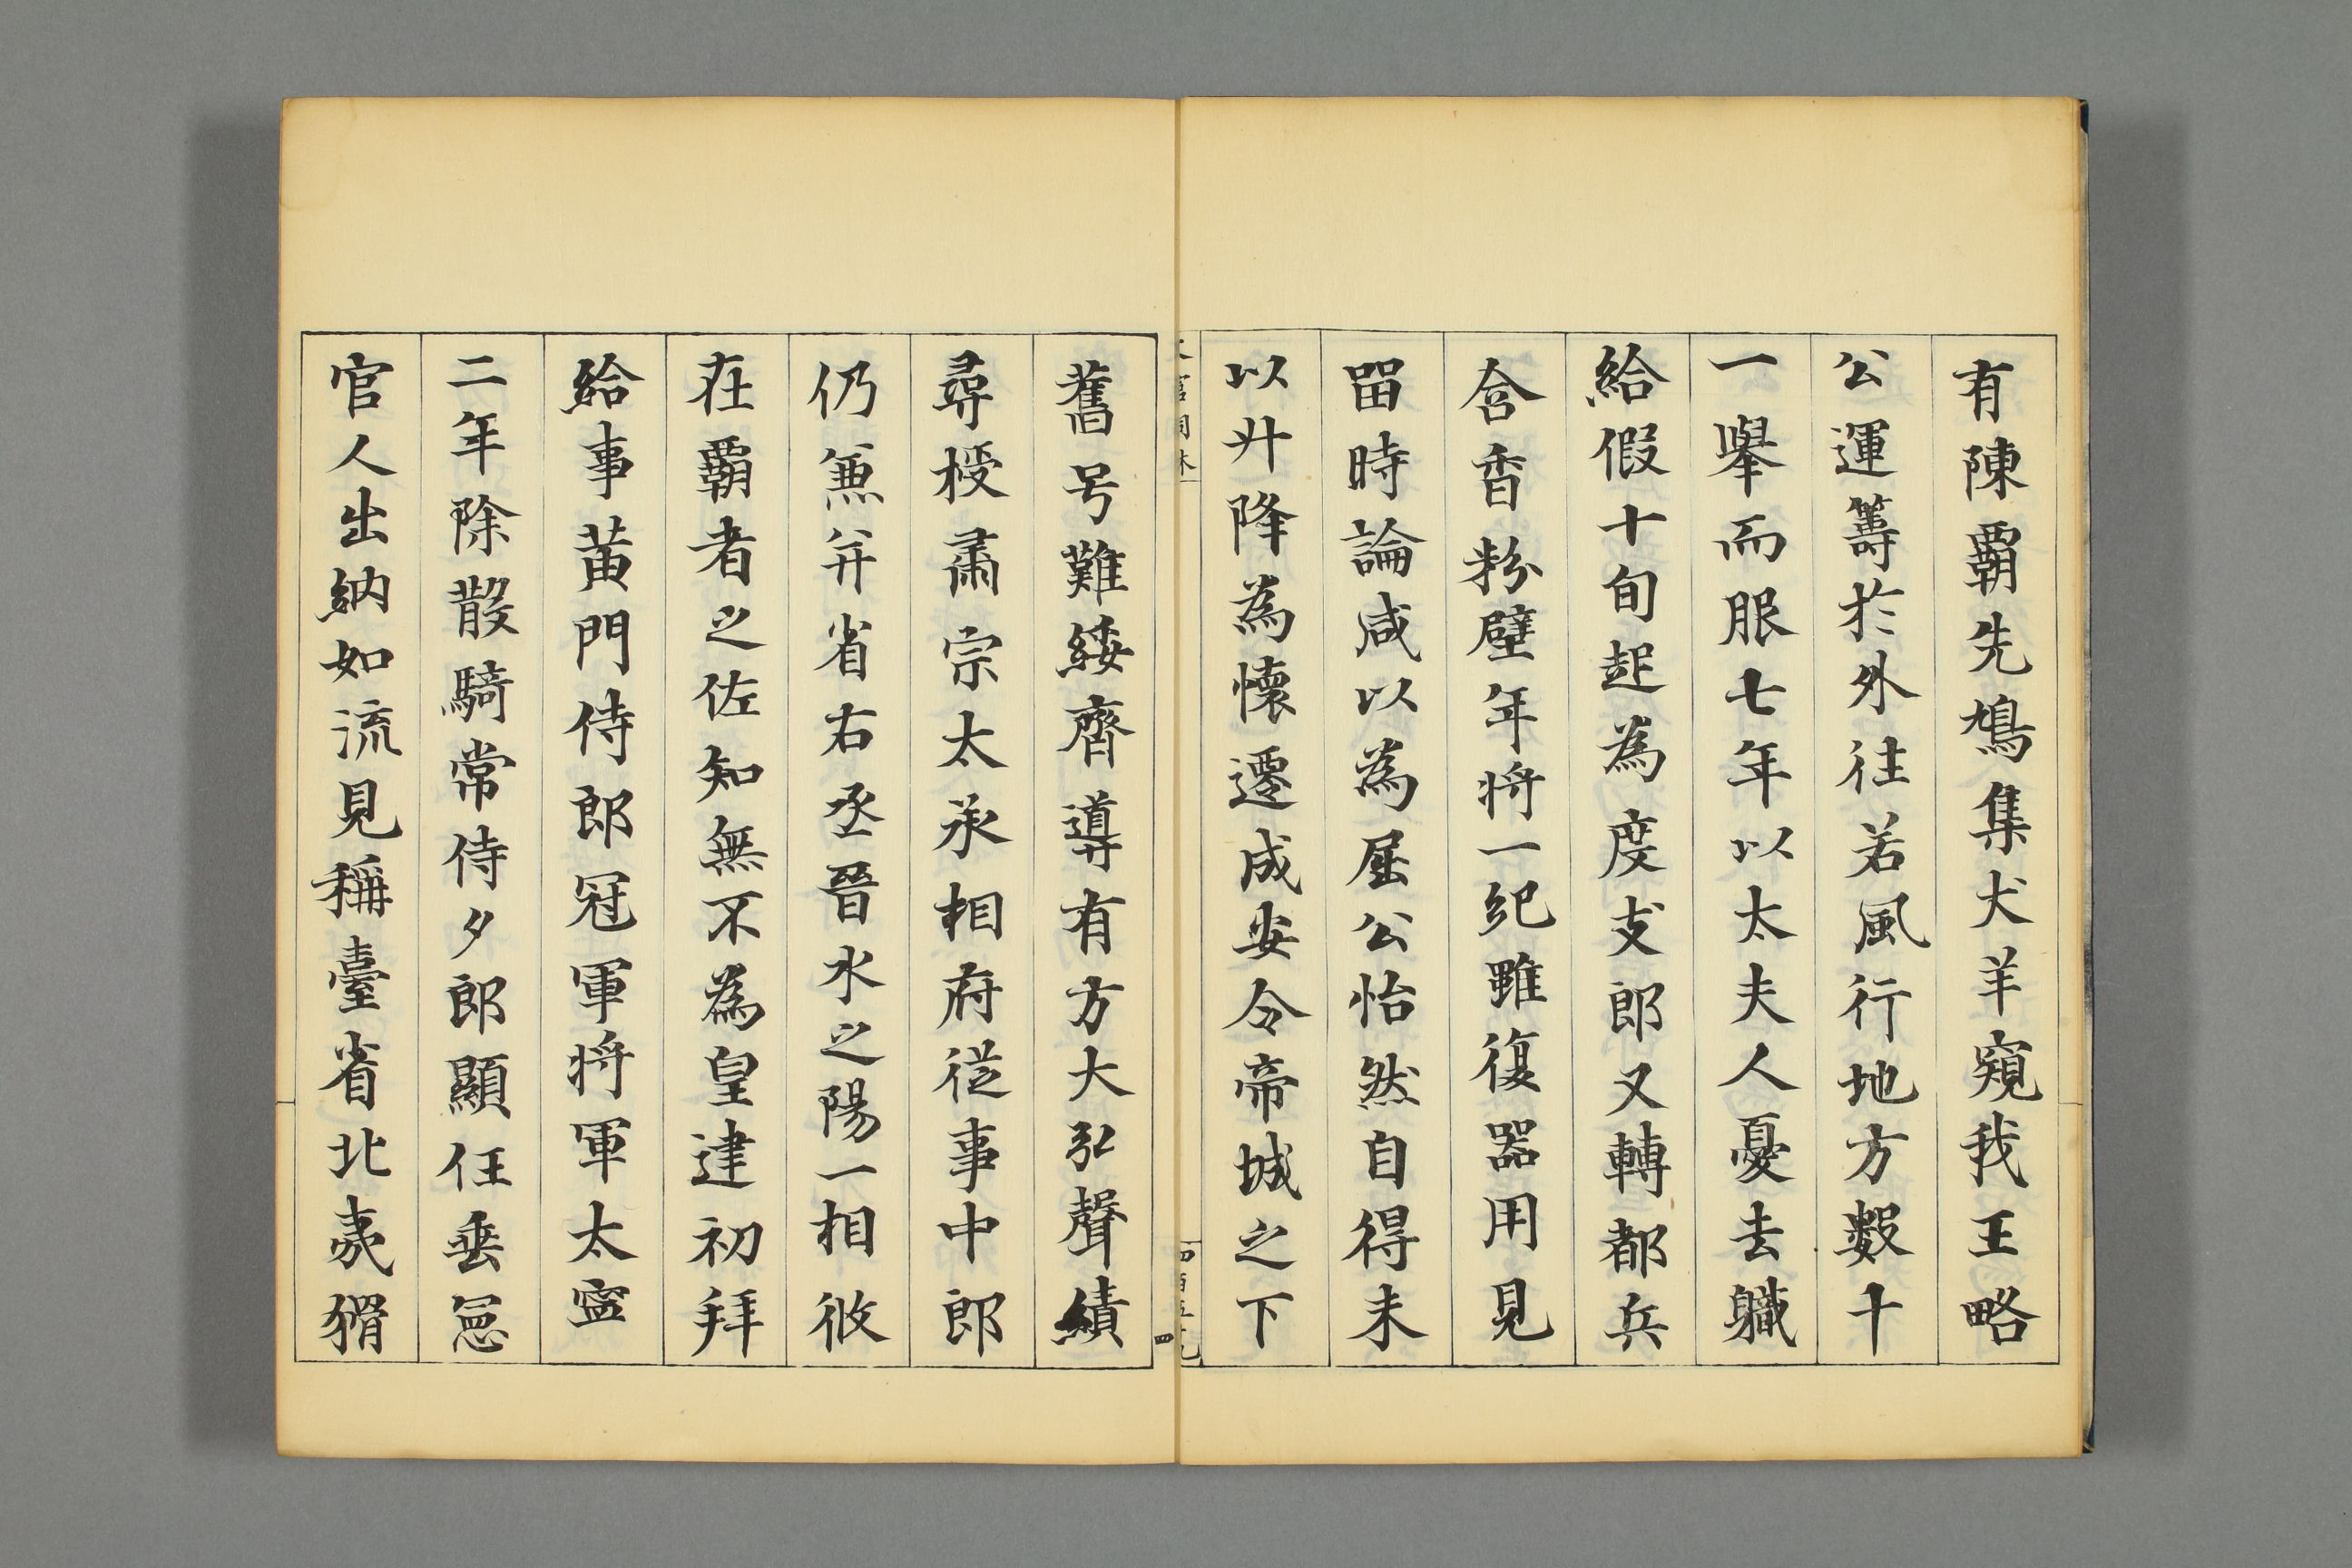 有陳覇先鳩集犬羊窺我王略
公運籌於外往若風行地方數十
一舉而服七年以太夫人憂去職
給假十旬起為度支郎又轉都兵
含香粉壁年將一紀雖復器用見
留時論咸以為屈公怡然自得未
以升降為懷遷成安令帝城之下
舊号難綏齊導有方大弘聲績
尋授肅宗太丞相府從事中郎
仍兼并省右丞晉水之陽一相攸
在覇者之佐知無不為皇建初拜
給事黄門侍郎冠軍將軍太寧
二年除散騎常侍夕郎顯任垂冕
官人出納如流見稱臺省北夷猾